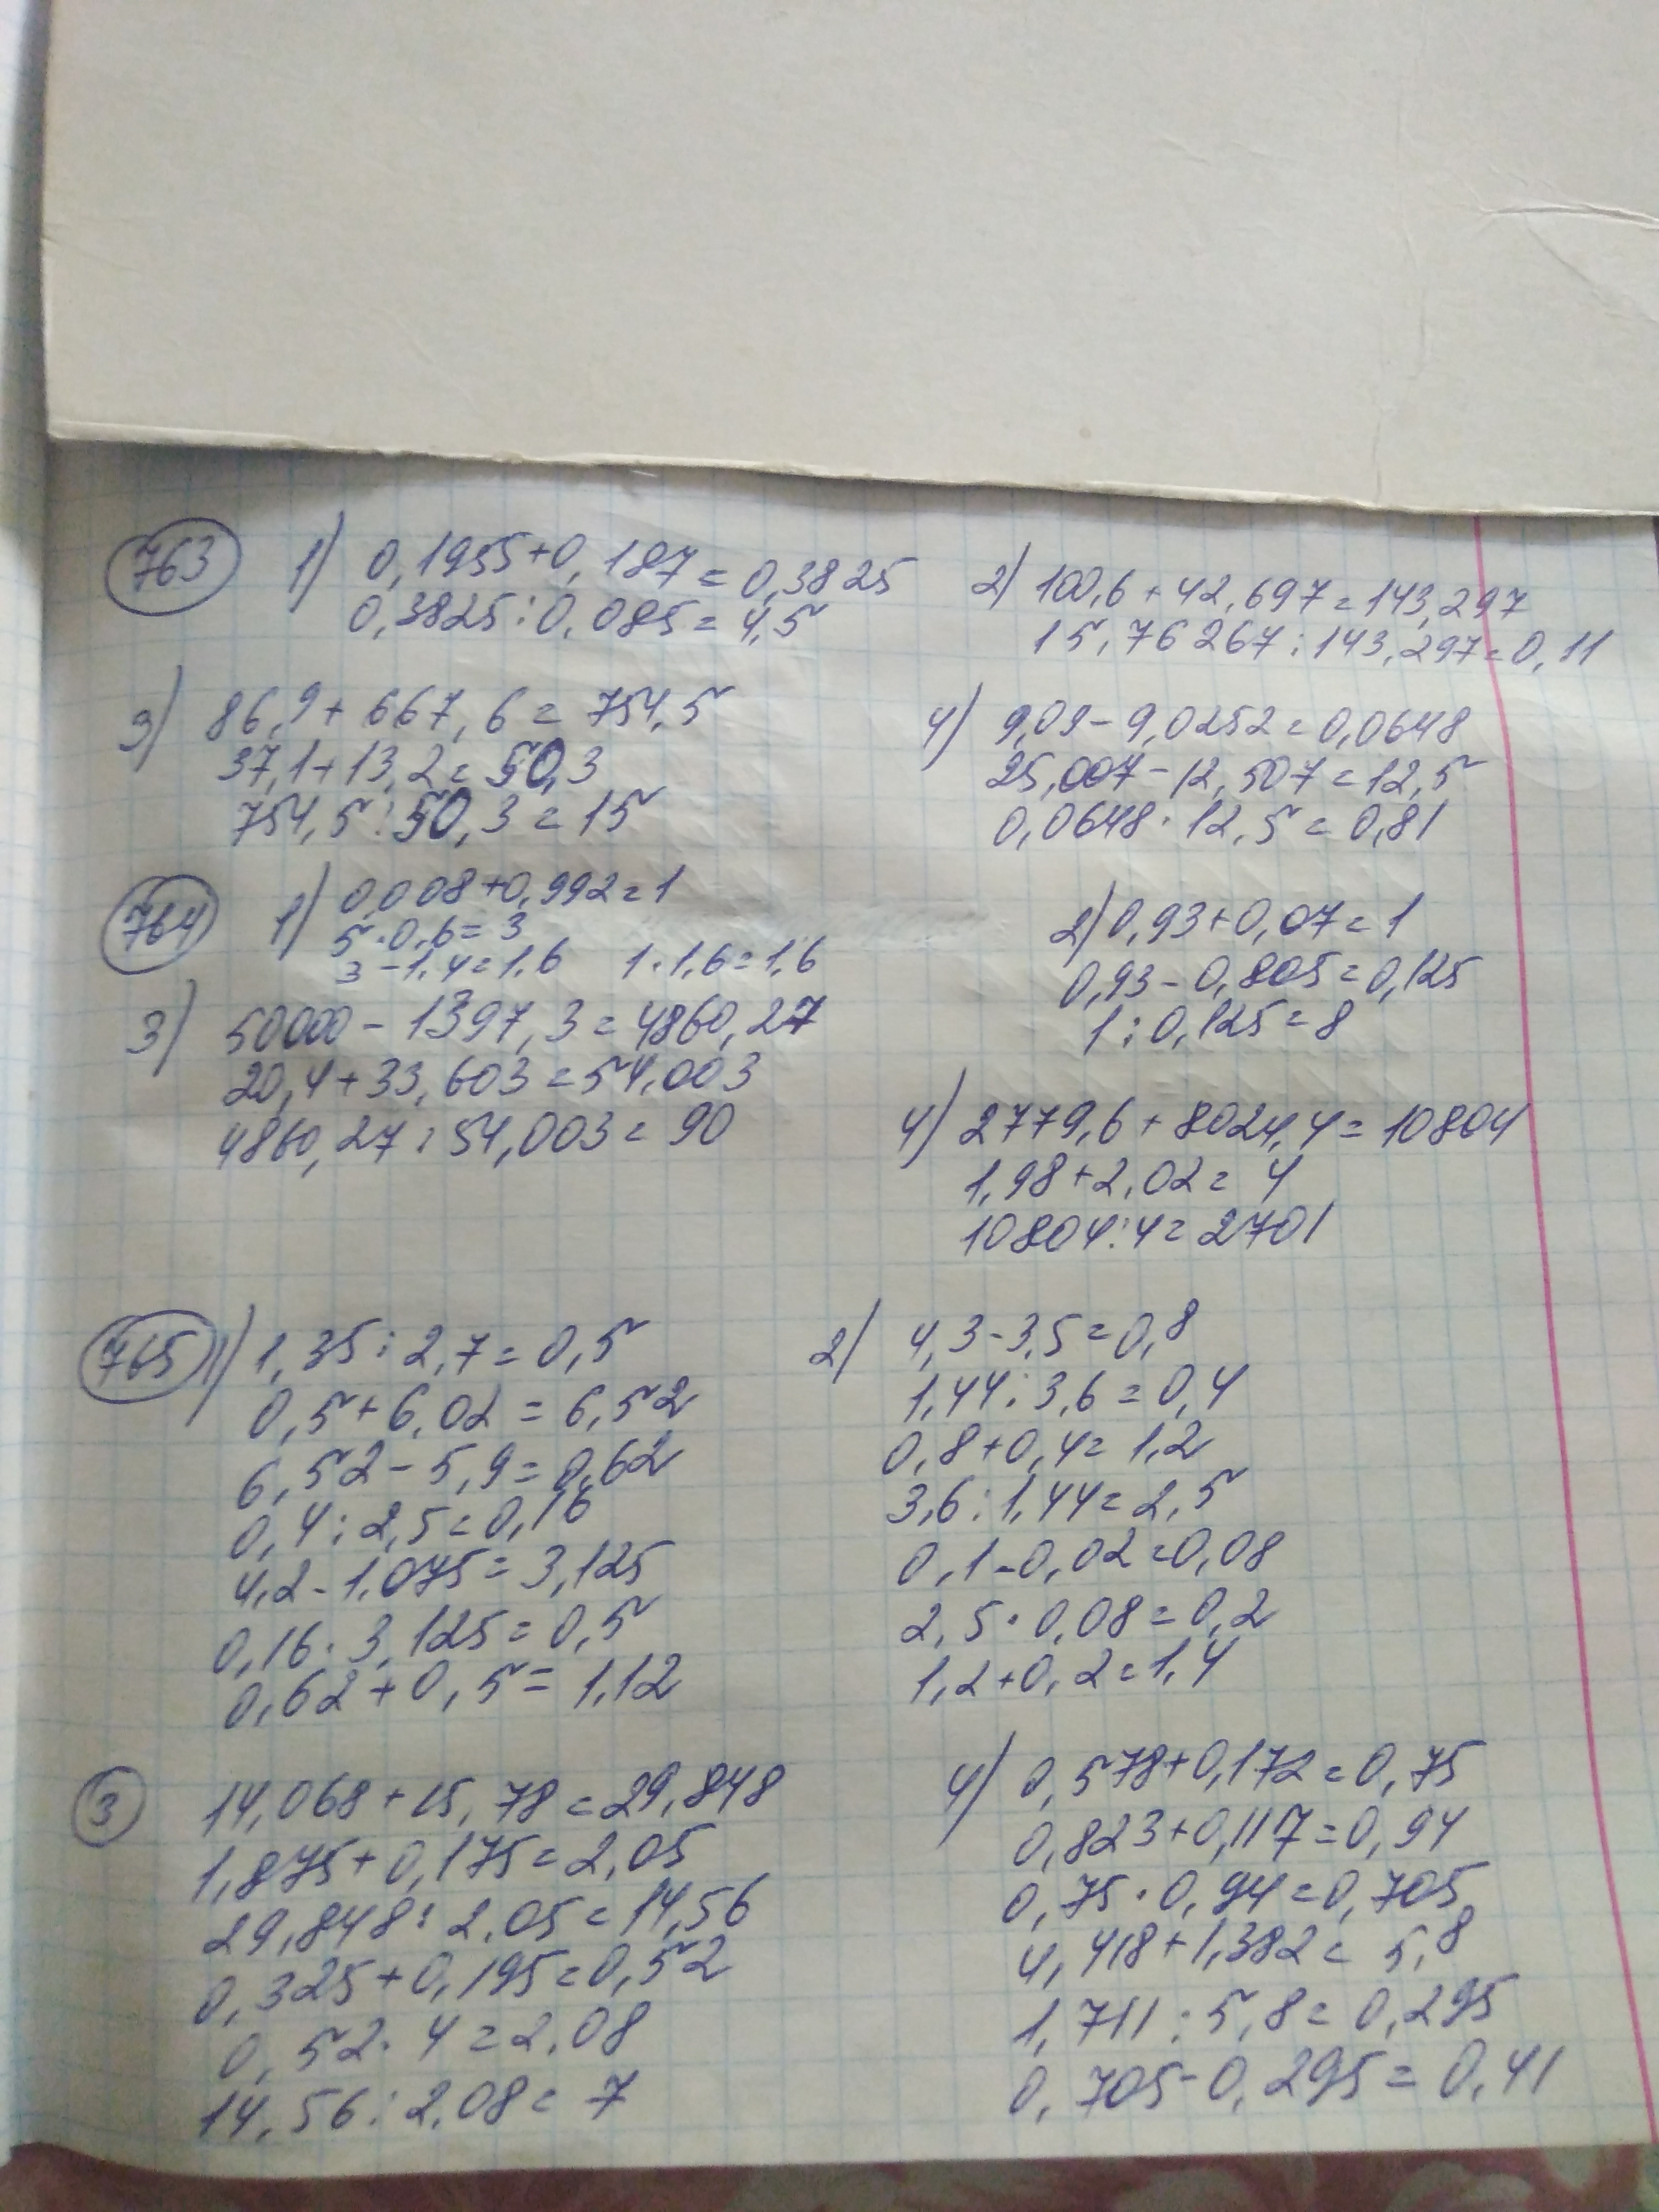 763 1) 0,1955+0,187=0,3825
0,3825:0,085=4,5
2) 100,6+42,697=143,297
15,76267:143,297=0,11
3) 86,9+667,6=754,5
37,1+13,2=50,3
754,5:50,3=15
4) 9,09-9,0252=0,0648
25,007-12,507=12,5
0,0648·12,5=0,81
764 1) 0,008+0,992=1
5·0,6=3
3-1,4=1,6 1·1,6=1,6
2) 0,93+0,07=1
0,93-0,805=0,125
1:0,125=8
3) 50000-1397,3=4860,27
20,4+33,603=54,003
4860,27:54,003=90
4) 2779,6+8024,4=10804
1,98+2,02=4
10804:4=2701
765 1) 1,35:2,7=0,5
0,5+6,02=6,52
6,52-5,9=0,62
0,4:2,5=0,16
4,2-1,075=3,125
0,16·3,125=0,5
0,62+0,5=1,12
2) 4,3-3,5=0,8
1,44:3,6=0,4
0,8+0,4=1,2
3,6:1,44=2,5
0,1-0,02=0,08
2,5·0,08=0,2
1,2+0,2=1,4
3 14,068+15,78=29,848
1,875+0,175=2,05
29,848:2,05=14,56
0,325+0,195=0,52
0,52·4=2,08
14,56:2,08=7
4) 0,578+0,172=0,75
0,823+0,117=0,94
0,75·0,94=0,705
4,418+1,382=5,8
1,711:5,8=0,295
0,705-0,295=0,41